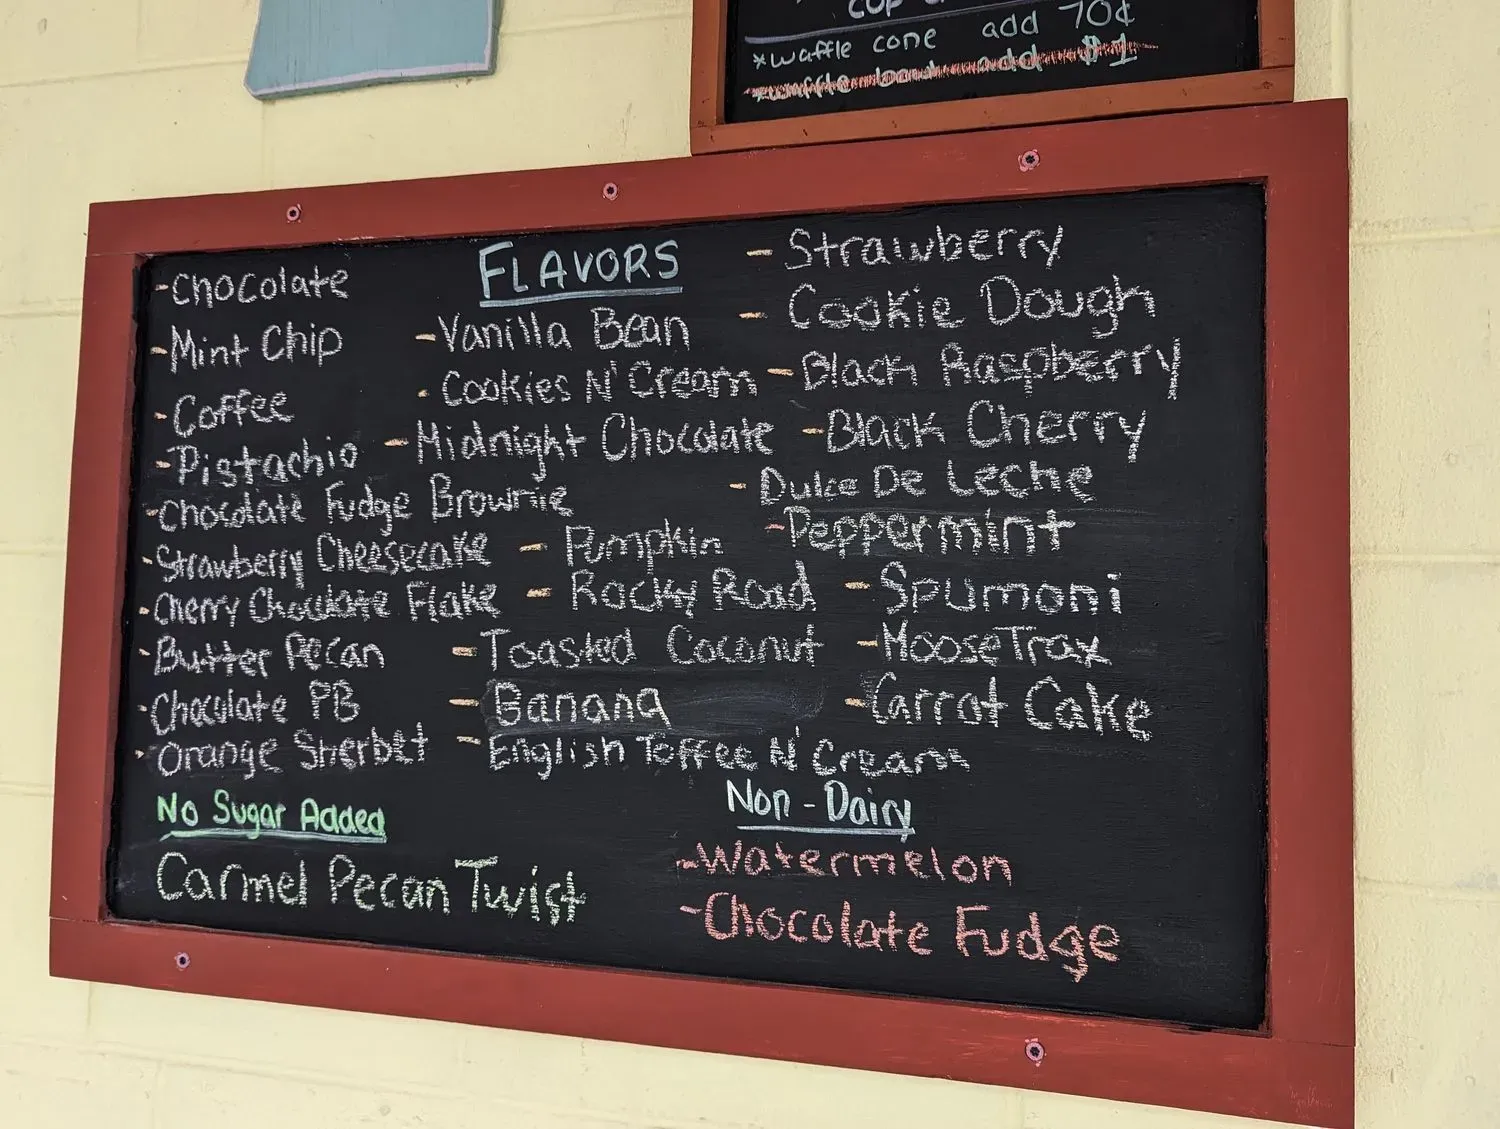 cup
*waffle cone add 70¢
*waffle bowl add $1
FLAVORS
-Chocolate
-Mint Chip
-Coffee
-Pistachio
-Chocolate Fudge Brownie
-Strawberry Cheesecake
-Cherry Chocolate Flake
-Butter Pecan
-Chocolate PB
-Orange Sherbet
-Vanilla Bean
-Cookies N' Cream
-Midnight Chocolate
-Pumpkin
-Rocky Road
-Toasted Coconut
-Banana
-English Toffee N' Cream
-Strawberry
-Cookie Dough
-Black Raspberry
-Black Cherry
-Dulce De Leche
-Peppermint
-Spumoni
-Moose Trax
-Carrot Cake
No Sugar Added
Carmel Pecan Twist
Non-Dairy
-Watermelon
-Chocolate Fudge